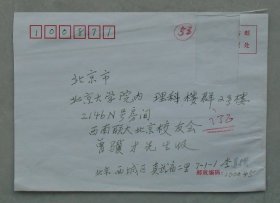 100871
53
邮
处
北京市
北京大学院内 理科楼群2号楼
2146N号房间
西南联大北京校友会
先生收
北京西城区真武庙二里7-1-1
邮政编码